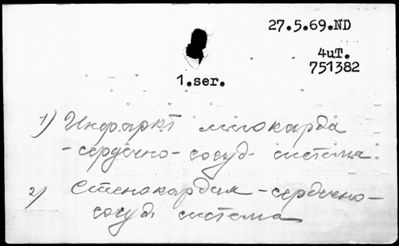 27.5.69.ND
4uT.
751382
1.ser.
1) Инфаркт миокарда
-сердечно-сосуд. система.
2) Стенокардия-сердечно-
сосуд. система